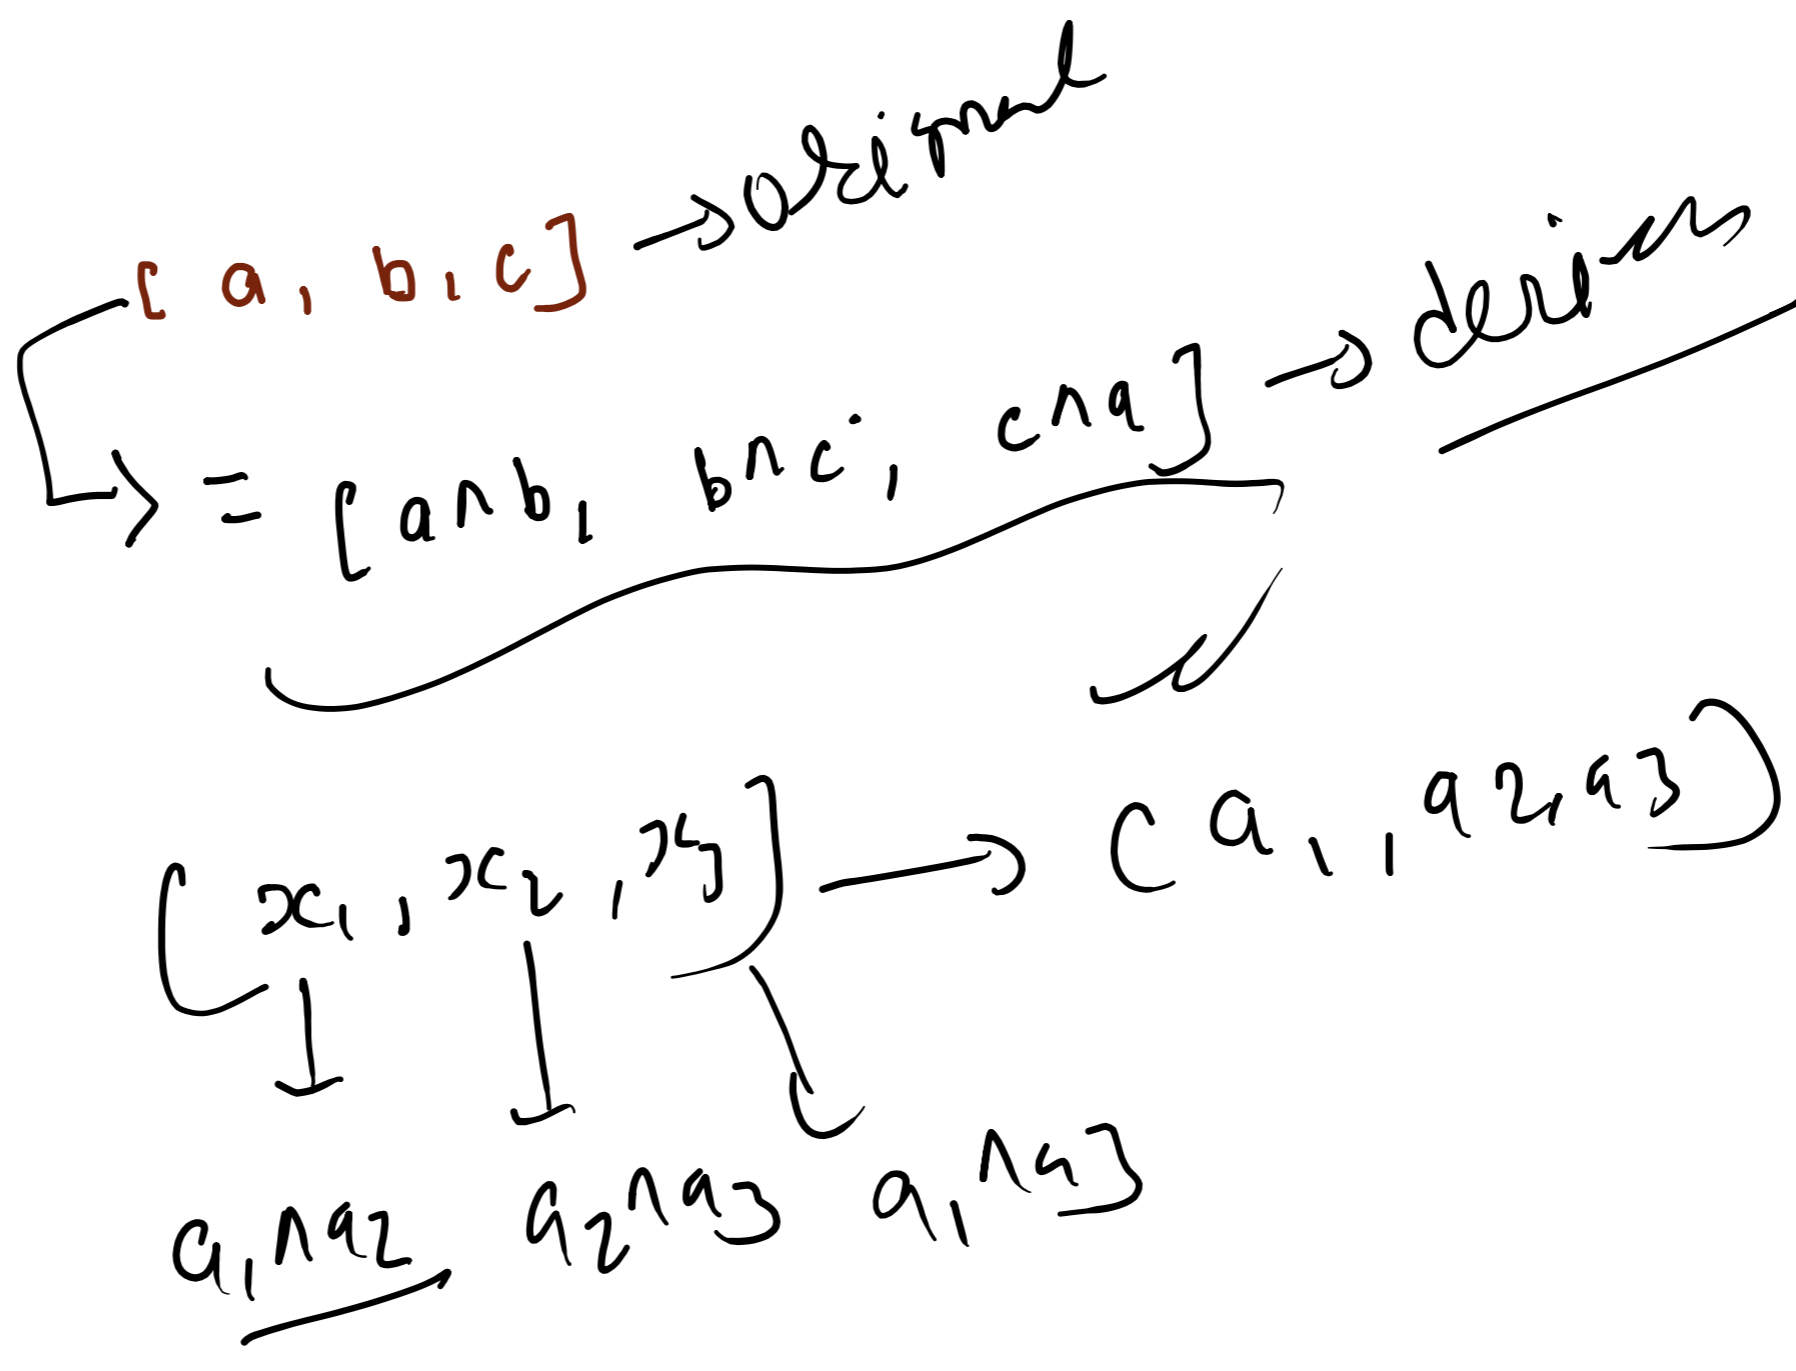 [ a, b, c ] → original
= [ a^b, b^c, c^a ] →
[ x1, x2, x3 ] → ( a1, a2, a3 )
a1^a2 a2^a3 a1^a3